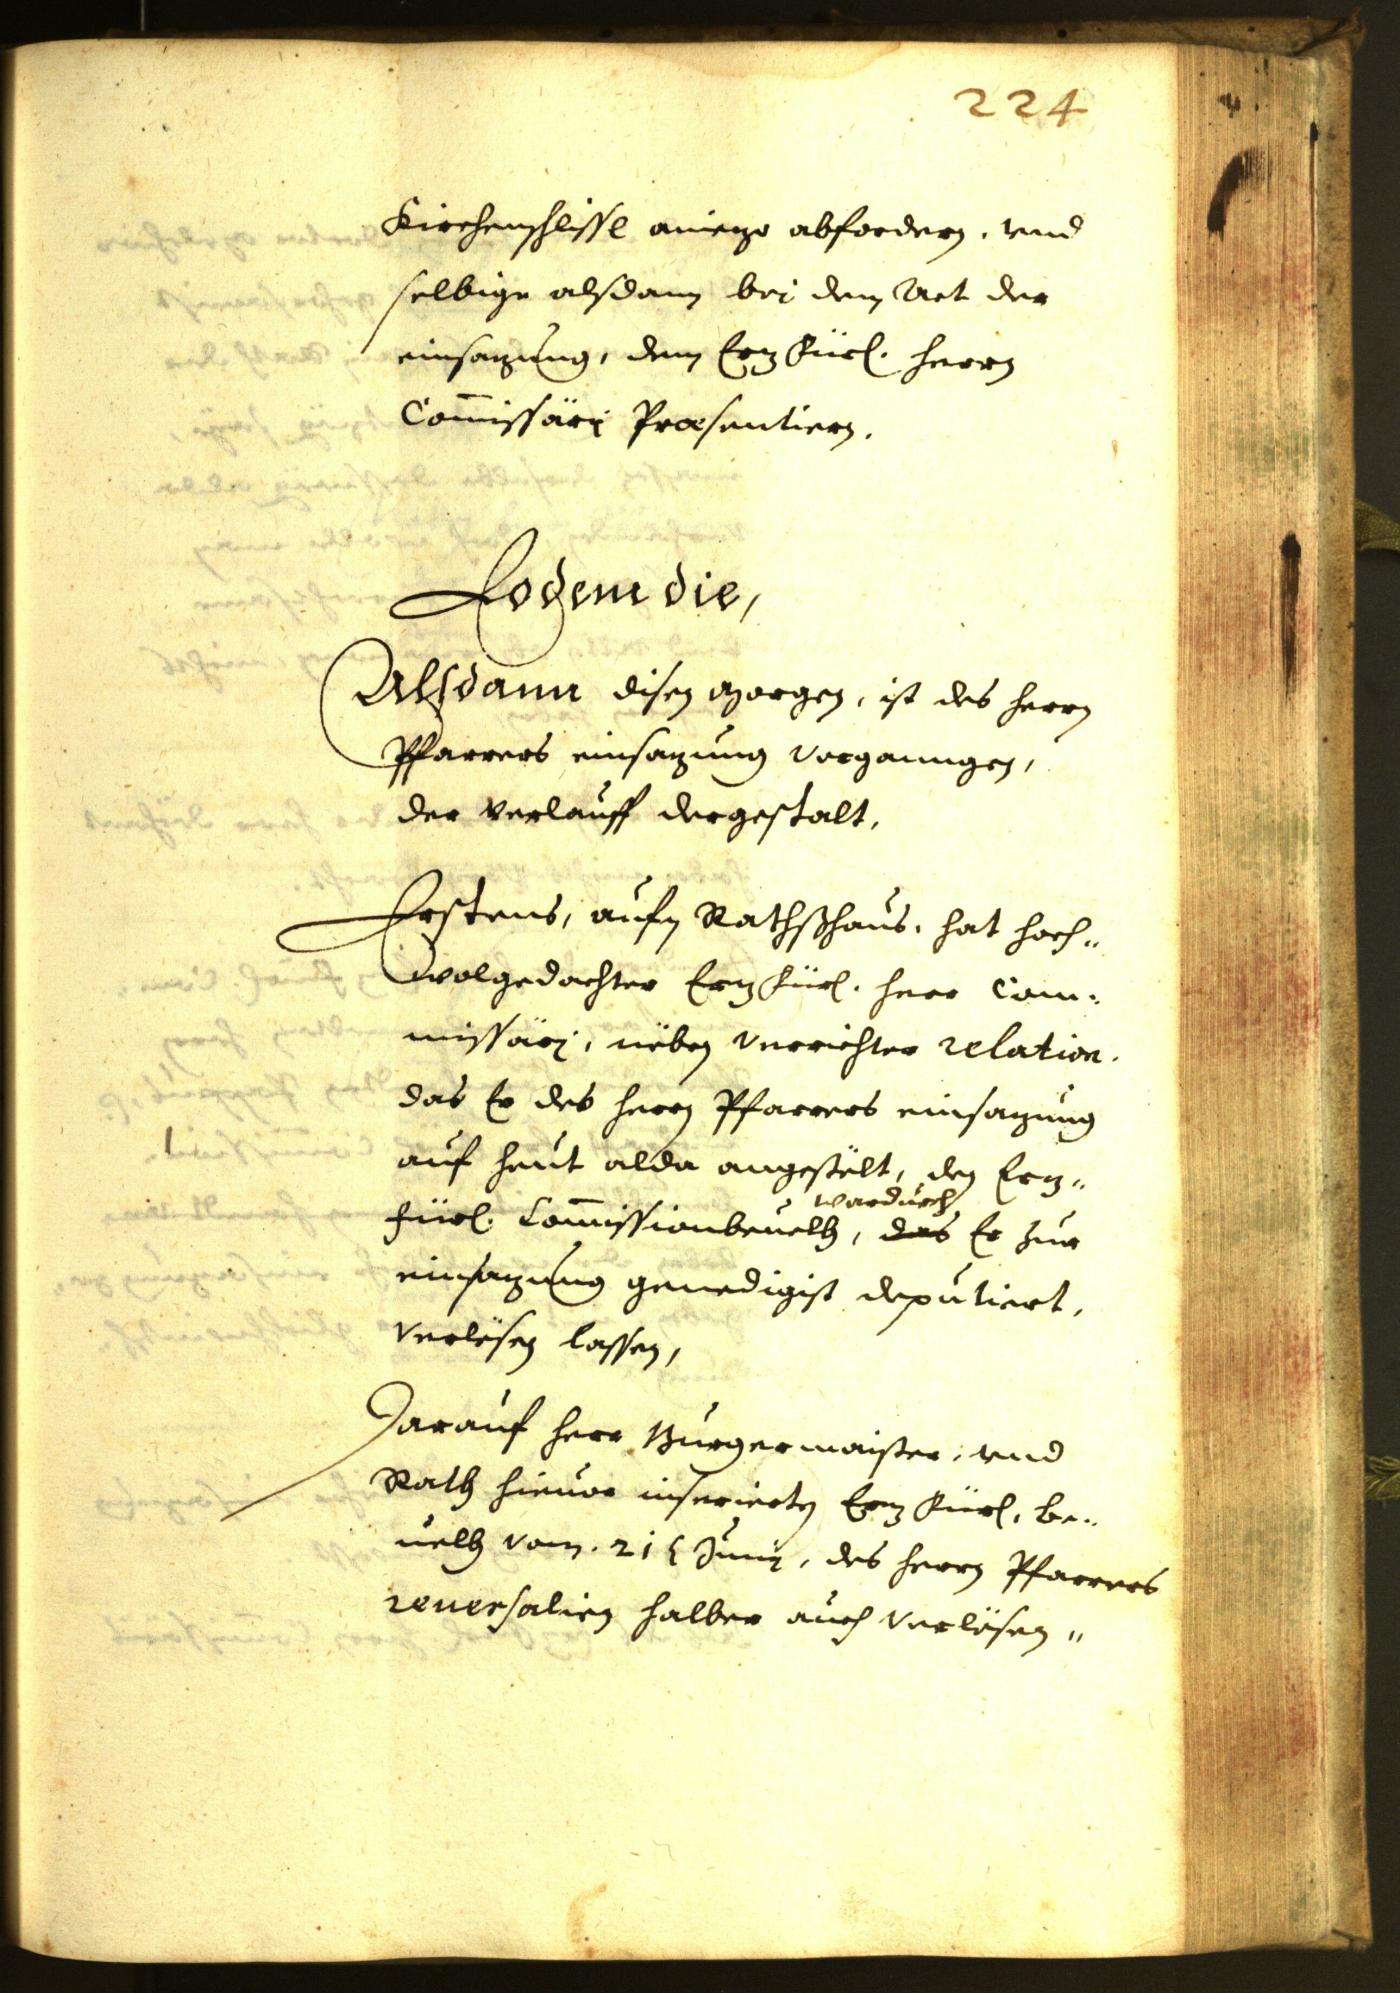 224
Kirchenschlissl aniezo abfordern, vnd
selbige alsdann bej dem Act der
einsazung, dem Erzfürl. herrn
Com̅issärj Præsentiern.
Eodem die,
Alsdann disen morgen, ist des herrn
Pfarrers einsazung vorganngen,
der verlauff dergestalt,
Erstens, aufm Rathßhaus, hat hoch„
wolgedachter Erzfürl. herr Com„
missärj, nëben verrichter relation,
das Er des herrn Pfarrers einsazung
auf heut alda angestëlt, den Erz„
wardurch
fürl. Com̅issionbeuelh, das Er zur
einsazung genedigist deputiert,
verlësen lassen,
Darauf herr Burgermaister, vnd
Rath hieuor inserierten Erzfürl, be„
uelh vom. 21 Junij, des herrn Pfarrers
reuersalien halber auch verlësen „